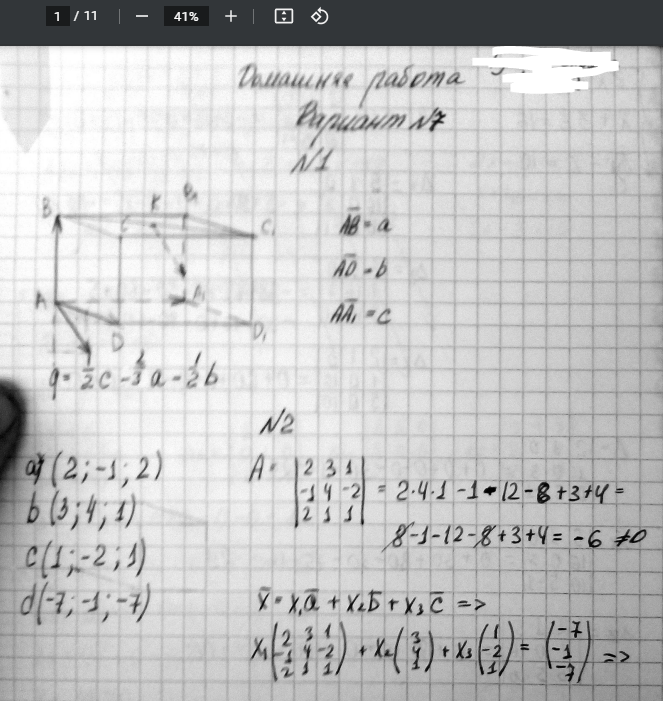 1 / 11
41%
Домашняя работа
Вариант №7
№1
B
K
B₁
C
C₁
A
A₁
D
D₁
AB = a
AD = b
AA₁ = c
q = 1/2 c - 1/3 a - 1/2 b
№2
a) (2; -1; 2)
b (3; 4; 1)
c (1; -2; 1)
d (-7; -1; -7)
A = |2 3 1|
|-1 4 -2| = 2·4·1 -1 - 12 - 8 + 3 + 4 =
|2 1 1|
8 - 1 - 12 - 8 + 3 + 4 = -6 ≠0
x̄ = x₁ā + x₂b̄ + x₃c̄ =>
x₁(2 3 1 / -1 4 -2 / 2 1 1) + x₂(3 / 4 / 1) + x₃(1 / -2 / 1) = (-7 / -1 / -7) =>